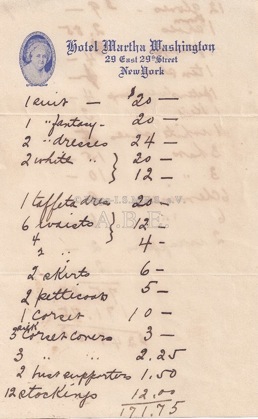 Hotel Martha Washington
29 East 29th Street
New York
1 suit — $20 —
1 " fantasy — 20 —
2 " dresses 24 —
2 white " } 20 —
12 —
1 taffeta dress 20 —
6 waists } 12 —
4 " 4 —
2 skirts 6 —
2 petticoats 5 —
1 corset 10 —
3 corset covers 3 —
3 " " 2.25
2 bust supporters 1.50
12 stockings 12.00
171.75